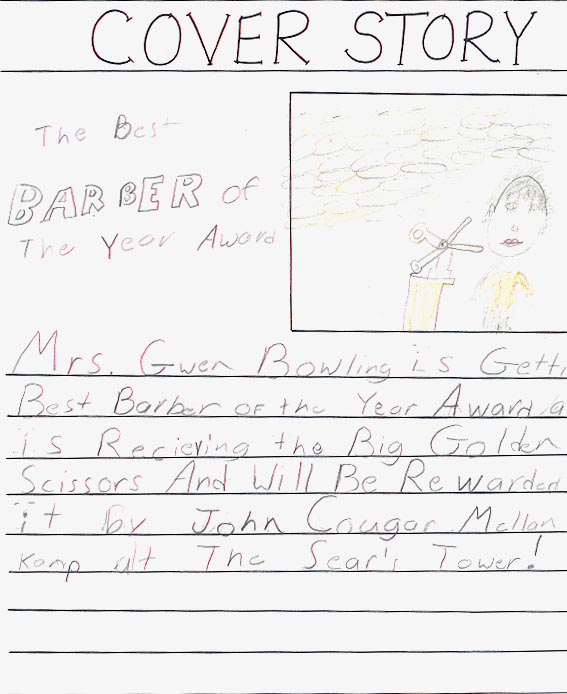 COVER STORY
The Best
BARBER of
The Year Award
Mrs. Gwen Bowling is Getti
Best Barber of the Year Award
is Recieving the Big Golden
Scissors And Will Be Rewarded
it by John Cougar Mellan
Kamp at The Sear's Tower!